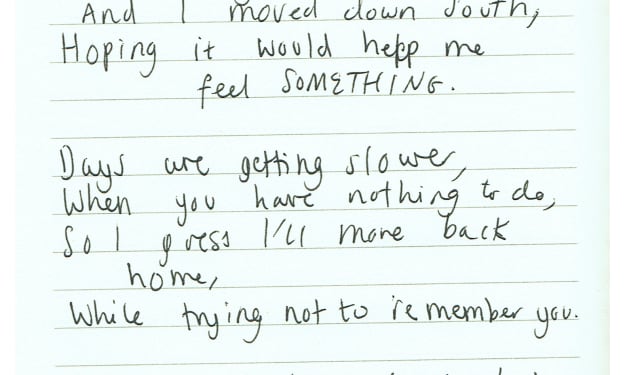 And I moved down South,
Hoping it would help me
feel SOMETHING.
Days are getting slower,
When you have nothing to do,
So I guess I'll move back
home,
While trying not to remember you.